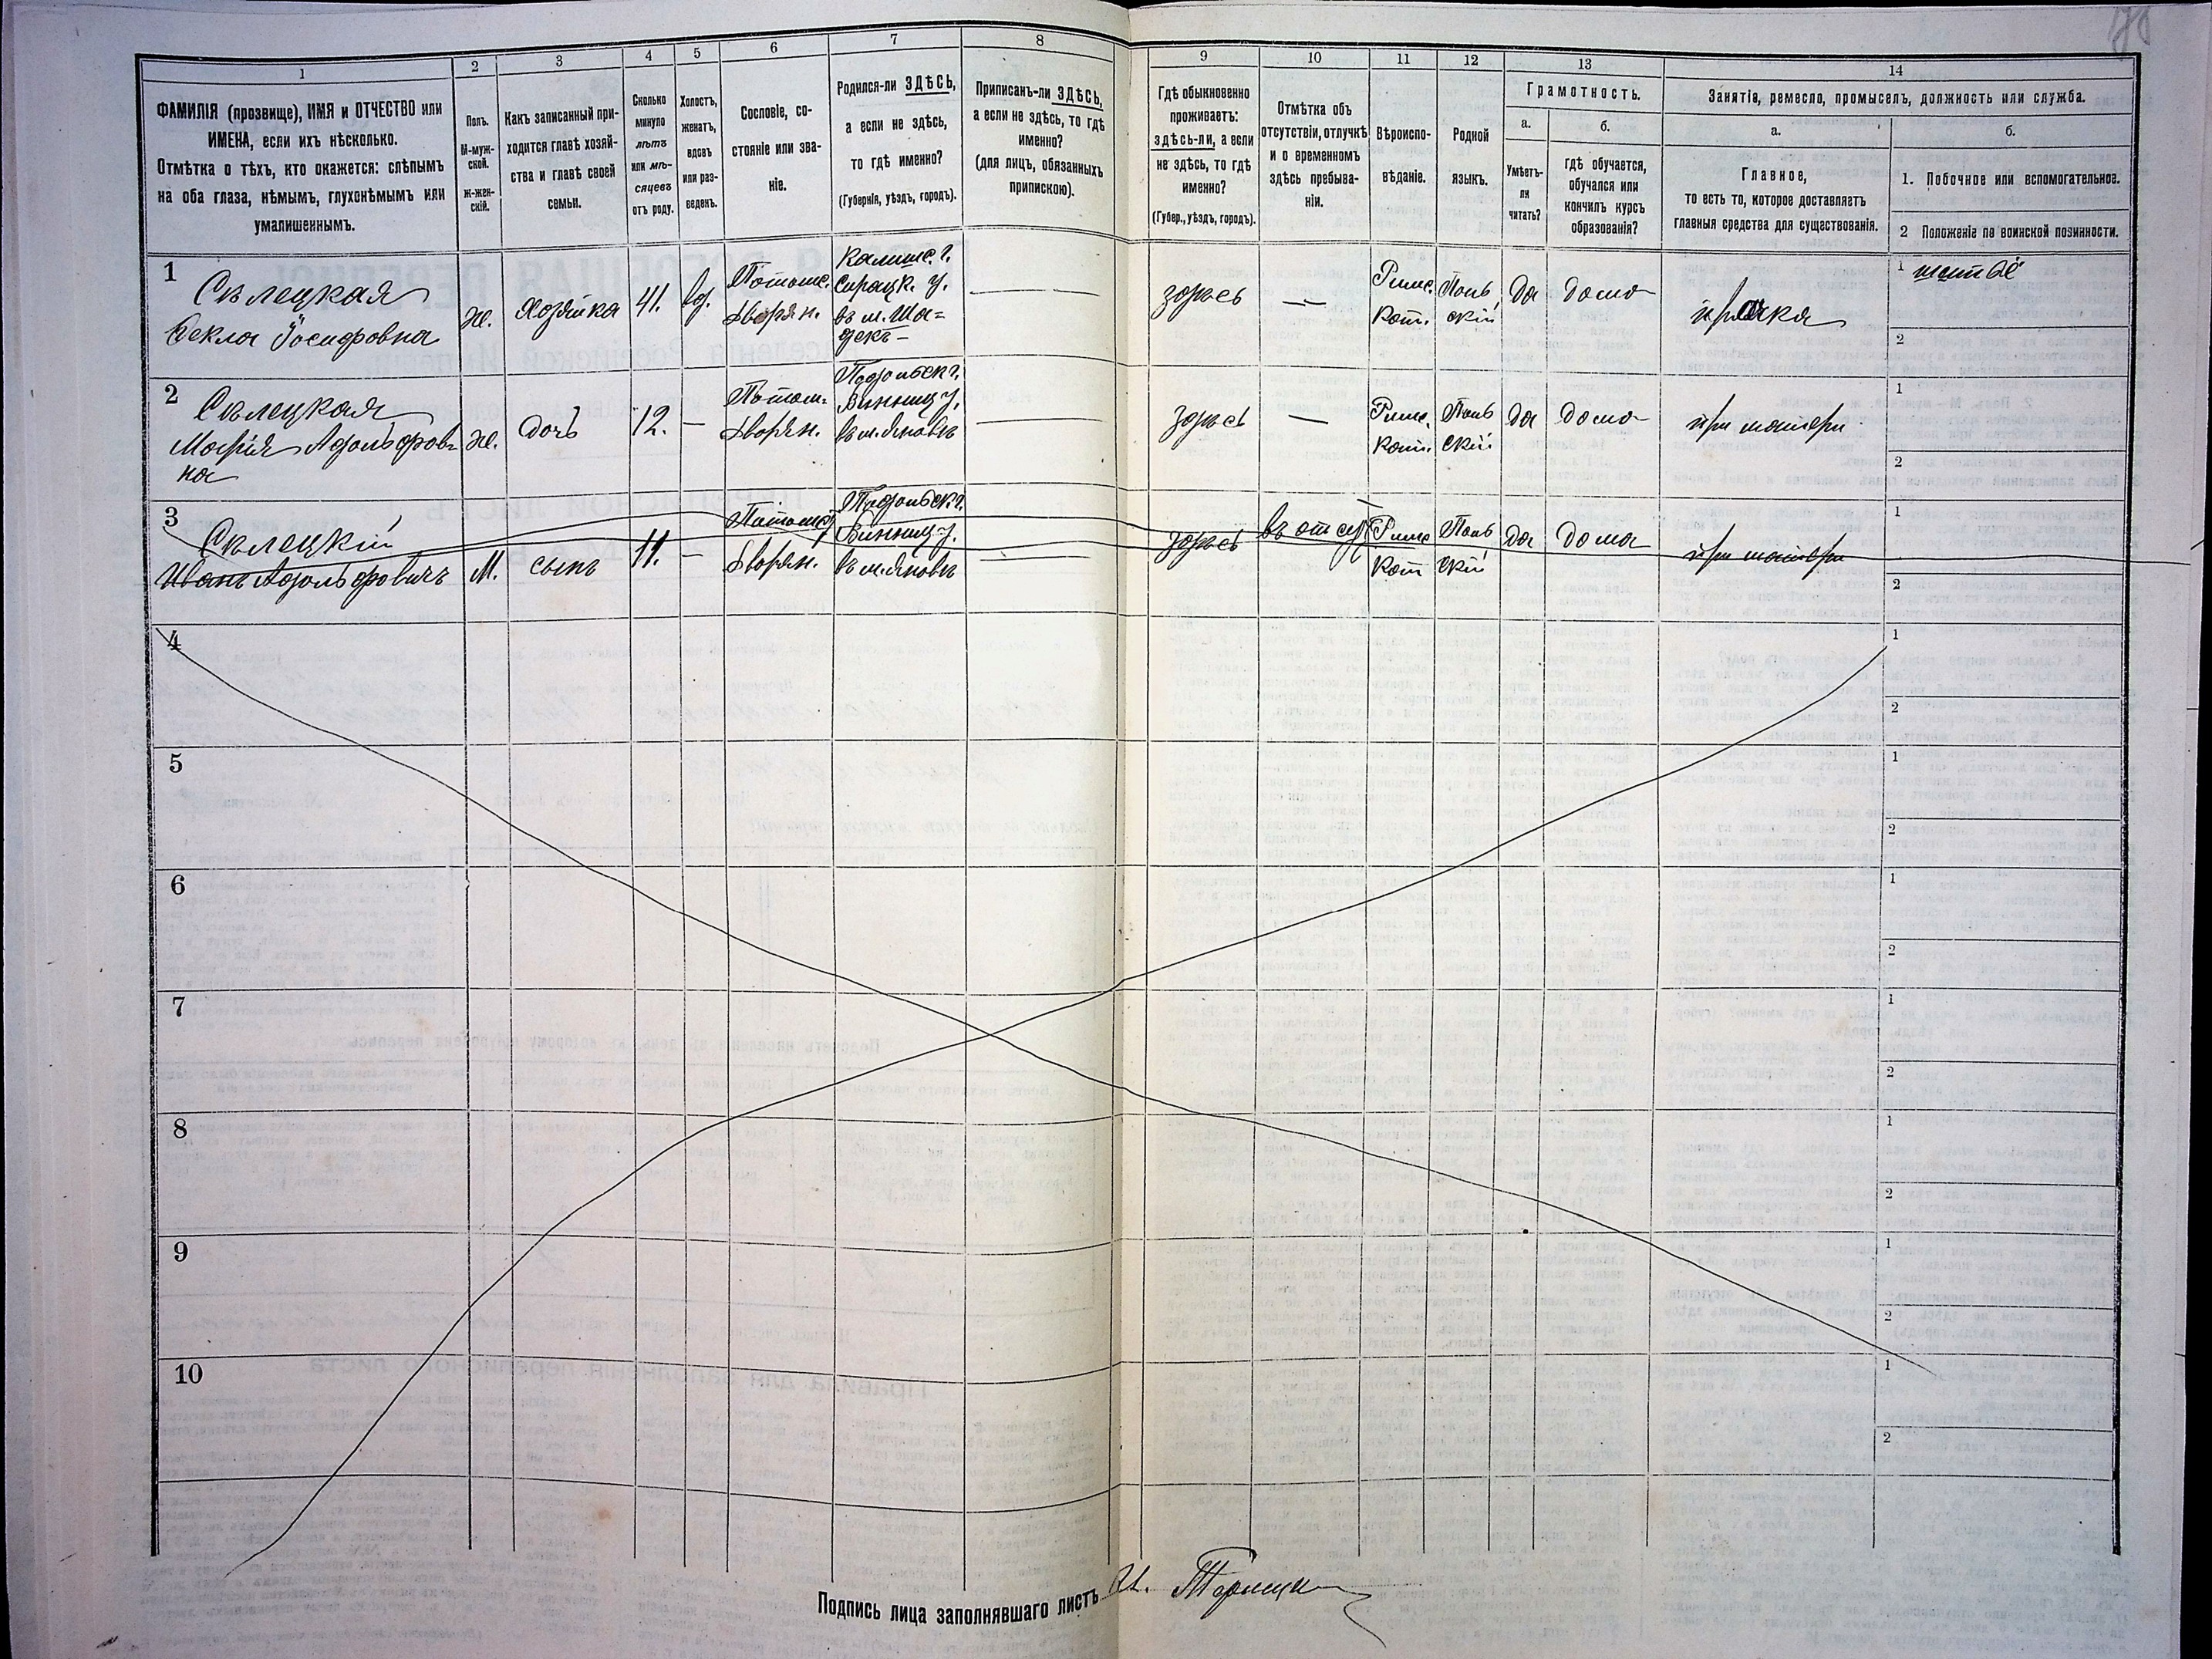 1
2
3
4
5
6
7
8
9
10
11
12
13
14
ФАМИЛІЯ (прозвище), ИМЯ и ОТЧЕСТВО или
ИМЕНА, если ихъ нѣсколько.
Отмѣтка о тѣхъ, кто окажется: слѣпымъ
на оба глаза, нѣмымъ, глухонѣмымъ или
умалишеннымъ.
Полъ.
М-муж-
ской.
ж-жен-
скій.
Какъ записанный при-
ходится главѣ хозяй-
ства и главѣ своей
семьи.
Сколько
минуло
лѣтъ
или мѣ-
сяцевъ
отъ роду.
Холостъ,
женатъ,
вдовъ
или раз-
веденъ.
Сословіе, со-
стояніе или зва-
ніе.
Родился-ли ЗДѢСЬ,
а если не здѣсь,
то гдѣ именно?
(Губернія, уѣздъ, городъ).
Приписанъ-ли ЗДѢСЬ,
а если не здѣсь, то гдѣ
именно?
(для лицъ, обязанныхъ
припискою).
Гдѣ обыкновенно
проживаетъ:
здѣсь-ли, а если
не здѣсь, то гдѣ
именно?
(Губер., уѣздъ, городъ).
Отмѣтка объ
отсутствіи, отлучкѣ
и о временномъ
здѣсь пребыва-
ніи.
Вѣроиспо-
вѣданіе.
Родной
языкъ.
Грамотность.
а.
Умѣетъ-
ли
читать?
б.
гдѣ обучается,
обучался или
кончилъ курсъ
образованія?
Занятіе, ремесло, промыселъ, должность или служба.
а.
Главное,
то есть то, которое доставляетъ
главныя средства для существованія.
б.
1. Побочное или вспомогательное.
2 Положеніе по воинской повинности.
1
Сѣлецкая
Ѳекла Іосифовна
Ж.
Хозяйка
41.
вд.
Потомс.
дворян.
Калишс. г.
Сирадк. у.
въ м. Ша=
декъ
здѣсь
—
Римс.
кат.
Поль
скій
да
дома
прачка
1
2
2
Сѣлецкая
Марія Адольфов=
на
Ж.
дочь
12.
—
Потом=
дворян.
Подольск г.
Винниц у.
въ м. Яновѣ
здѣсь
—
Римс.
кат.
Поль
скій
да
дома
при матери
1
2
3
Сѣлецкій
Иванъ Адольфовичъ
М.
сынъ
11.
—
Потомс
дворян.
Подольск г.
Винниц у.
въ м. Яновѣ
здѣсь
въ отсут
Римс
кат
Поль
скій
да
дома
при матери
1
2
4
1
2
5
1
2
6
1
2
7
1
2
8
1
2
9
1
2
10
1
2
Подпись лица заполнявшаго листъ